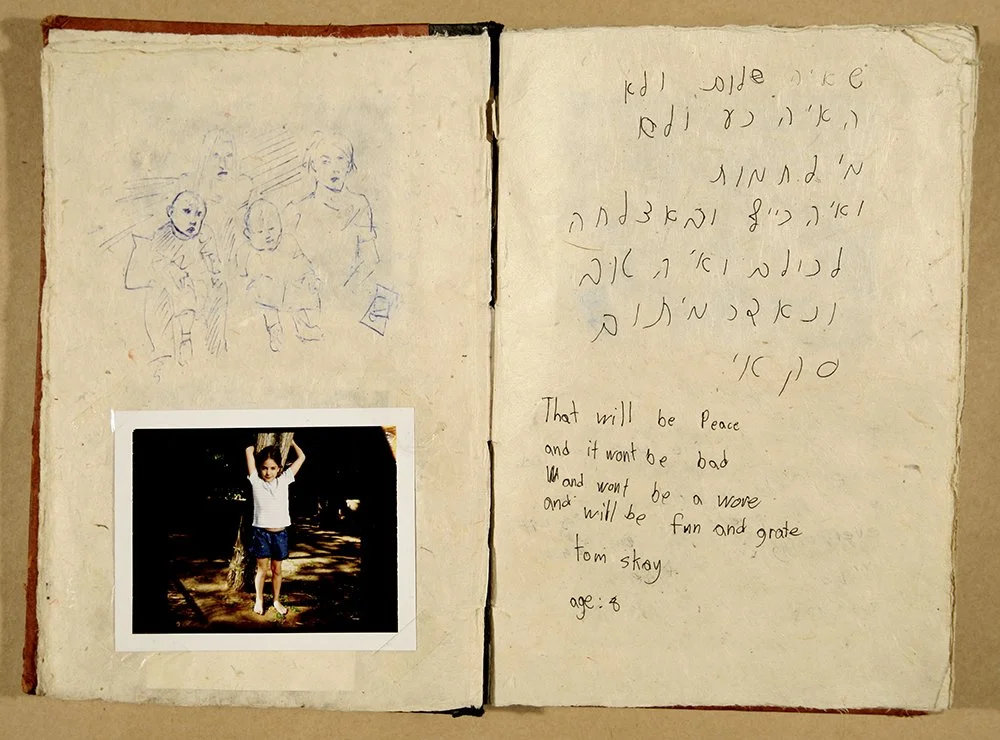 שאיה שלום ולא
האיה רע ולם
מילחמות
ואיה כייף ובאצלחה
לכולם ואיה טוב
ונאדר מיתום
סקאי
That will be Peace
and it wont be bad
and wont be a wore
and will be fun and grate
tom skay
age: 8